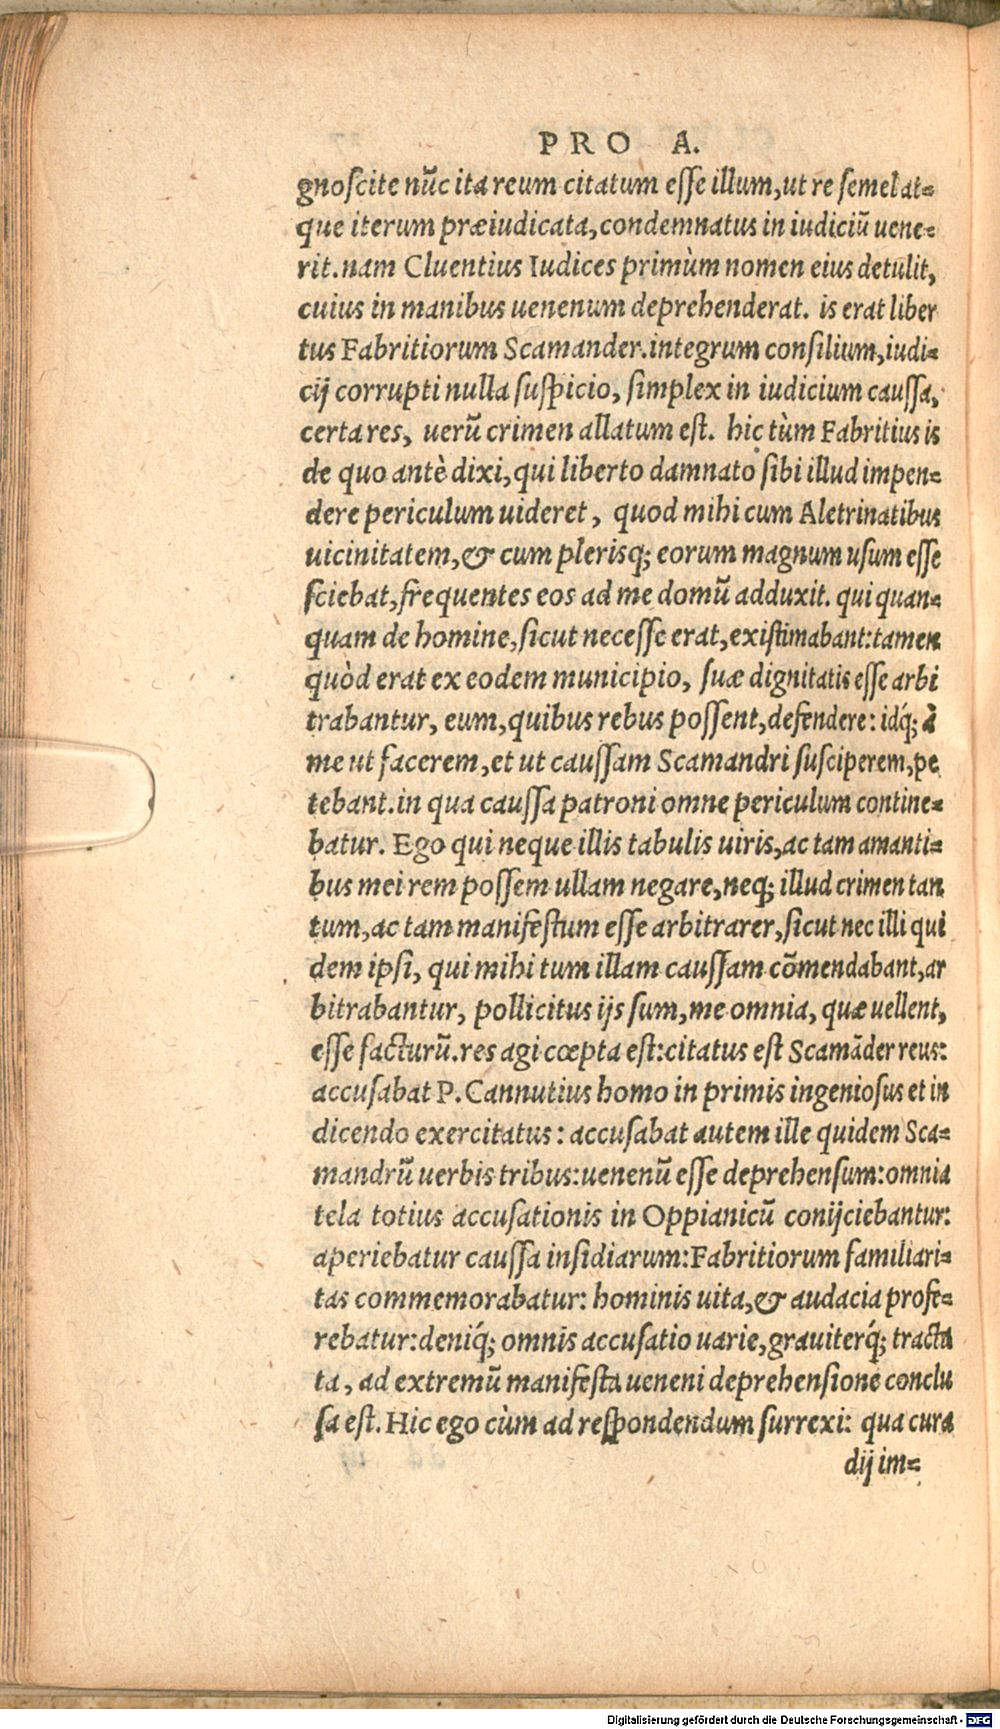 PRO A.
gnoscite nūc ita reum citatum esse illum, ut re semel at=
que iterum præiudicata, condemnatus in iudiciū uene=
rit. nam Cluentius Iudices primùm nomen eius detulit,
cuius in manibus uenenum deprehenderat. is erat liber
tus Fabritiorum Scamander. integrum consilium, iudi=
cij corrupti nulla suspicio, simplex in iudicium caussa,
certa res, uerū crimen allatum est. hic tùm Fabritius is
de quo antè dixi, qui liberto damnato sibi illud impen=
dere periculum uideret, quod mihi cum Aletrinatibus
uicinitatem, & cum plerisq; eorum magnum usum esse
sciebat, frequentes eos ad me domū adduxit. qui quan=
quam de homine, sicut necesse erat, existimabant: tamen
quòd erat ex eodem municipio, suæ dignitatis esse arbi
trabantur, eum, quibus rebus possent, defendere: idq́; à
me ut facerem, et ut caussam Scamandri susciperem, pe
tebant. in qua caussa patroni omne periculum contine=
batur. Ego qui neque illis tabulis uiris, ac tam amanti=
bus mei rem possem ullam negare, neq; illud crimen tan
tum, ac tam manifestum esse arbitrarer, sicut nec illi qui
dem ipsi, qui mihi tum illam caussam cōmendabant, ar
bitrabantur, pollicitus ijs sum, me omnia, quæ uellent,
esse facturū. res agi cœpta est: citatus est Scamāder reus:
accusabat P. Cannutius homo in primis ingeniosus et in
dicendo exercitatus: accusabat autem ille quidem Sca=
mandrū uerbis tribus: uenenū esse deprehensum: omnia
tela totius accusationis in Oppianicū conijciebantur:
aperiebatur caussa insidiarum: Fabritiorum familiari=
tas commemorabatur: hominis uita, & audacia profe=
rebatur: deniq́; omnis accusatio uarie, grauiterq́; tracta
ta, ad extremū manifesta ueneni deprehensione conclu
sa est. Hic ego cùm ad respondendum surrexi: qua cura
dij im=
Digitalisierung gefördert durch die Deutsche Forschungsgemeinschaft - DFG